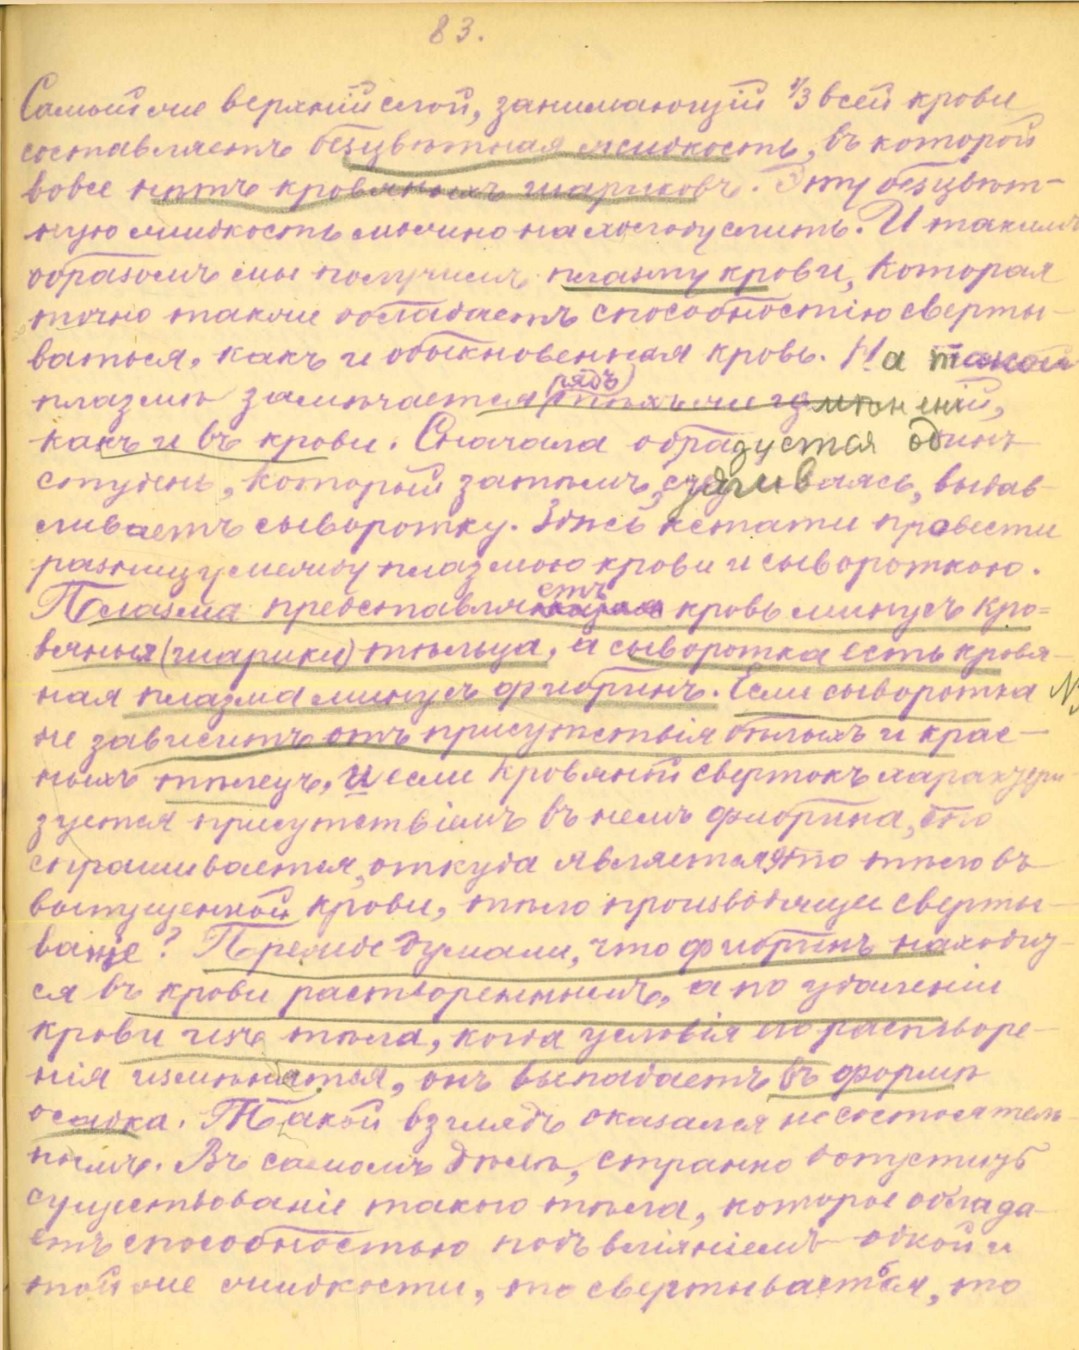 83.
Самый же верхній слой, занимающій 1/3 всей крови
составляетъ безцвѣтная жидкость, въ которой
вовсе нѣтъ кровяныхъ шариковъ. Эту безцвѣт-
ную жидкость можно насосомъ слить. И такимъ
образомъ мы получимъ плазму крови, которая
точно также обладаетъ способностію сверты-
ваться, какъ и обыкновенная кровь. На такой
плазмѣ замѣчается рядъ тѣхъ же измѣненій,
какъ и въ крови. Сначала образуется одинъ
студень, который затѣмъ, съуживаясь, выдав-
ливаетъ сыворотку. Здѣсь кстати провести
разницу между плазмою крови и сывороткою.
Плазма представляетъ кровь минусъ кро-
вяныя (шарики) тѣльца, а сыворотка есть кровя-
ная плазма минусъ фибринъ. Если сыворотка
не зависитъ отъ присутствія бѣлыхъ и крас-
ныхъ тѣлецъ, и если кровяной свертокъ характери-
зуется присутствіемъ въ немъ фибрина, то
спрашивается, откуда является это тѣло въ
выпущенной крови, тѣло производящее сверты-
ваніе? Прежде думали, что фибринъ находит-
ся въ крови раствореннымъ, а по удаленіи
крови изъ тѣла, когда условія его растворе-
нія измѣнятся, онъ выпадаетъ въ формѣ
осадка. Такой взглядъ оказался несостоятель-
нымъ. Въ самомъ дѣлѣ, странно допустить
существованіе такого тѣла, которое облада-
етъ способностью подъ вліяніемъ одной и
той же жидкости, то свертываться, то